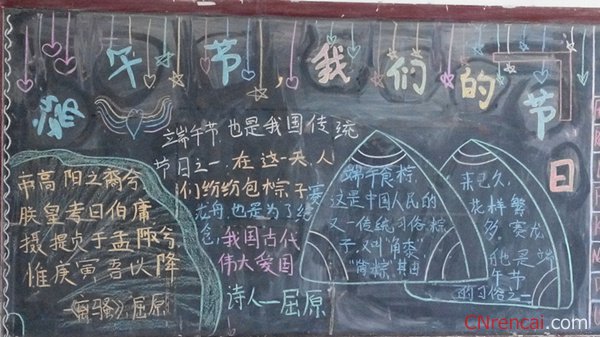 端午节,我们的节日
帝高阳之裔兮
朕皇考曰伯庸
摄提贞于孟陬兮
惟庚寅吾以降
—《离骚》屈原
端午节,也是我国传统
节日之一,在这一天,人
们纷纷包粽子,赛
龙舟也是为了纪
念,我国古代
伟大爱国
诗人—屈原
端午食粽,
这是中国人民的
又一传统习俗粽
子,又叫"角黍"
"筒粽"其由
来已久,
花样繁
多。赛龙
也是端
午节
的习俗之一
CNrencai.com